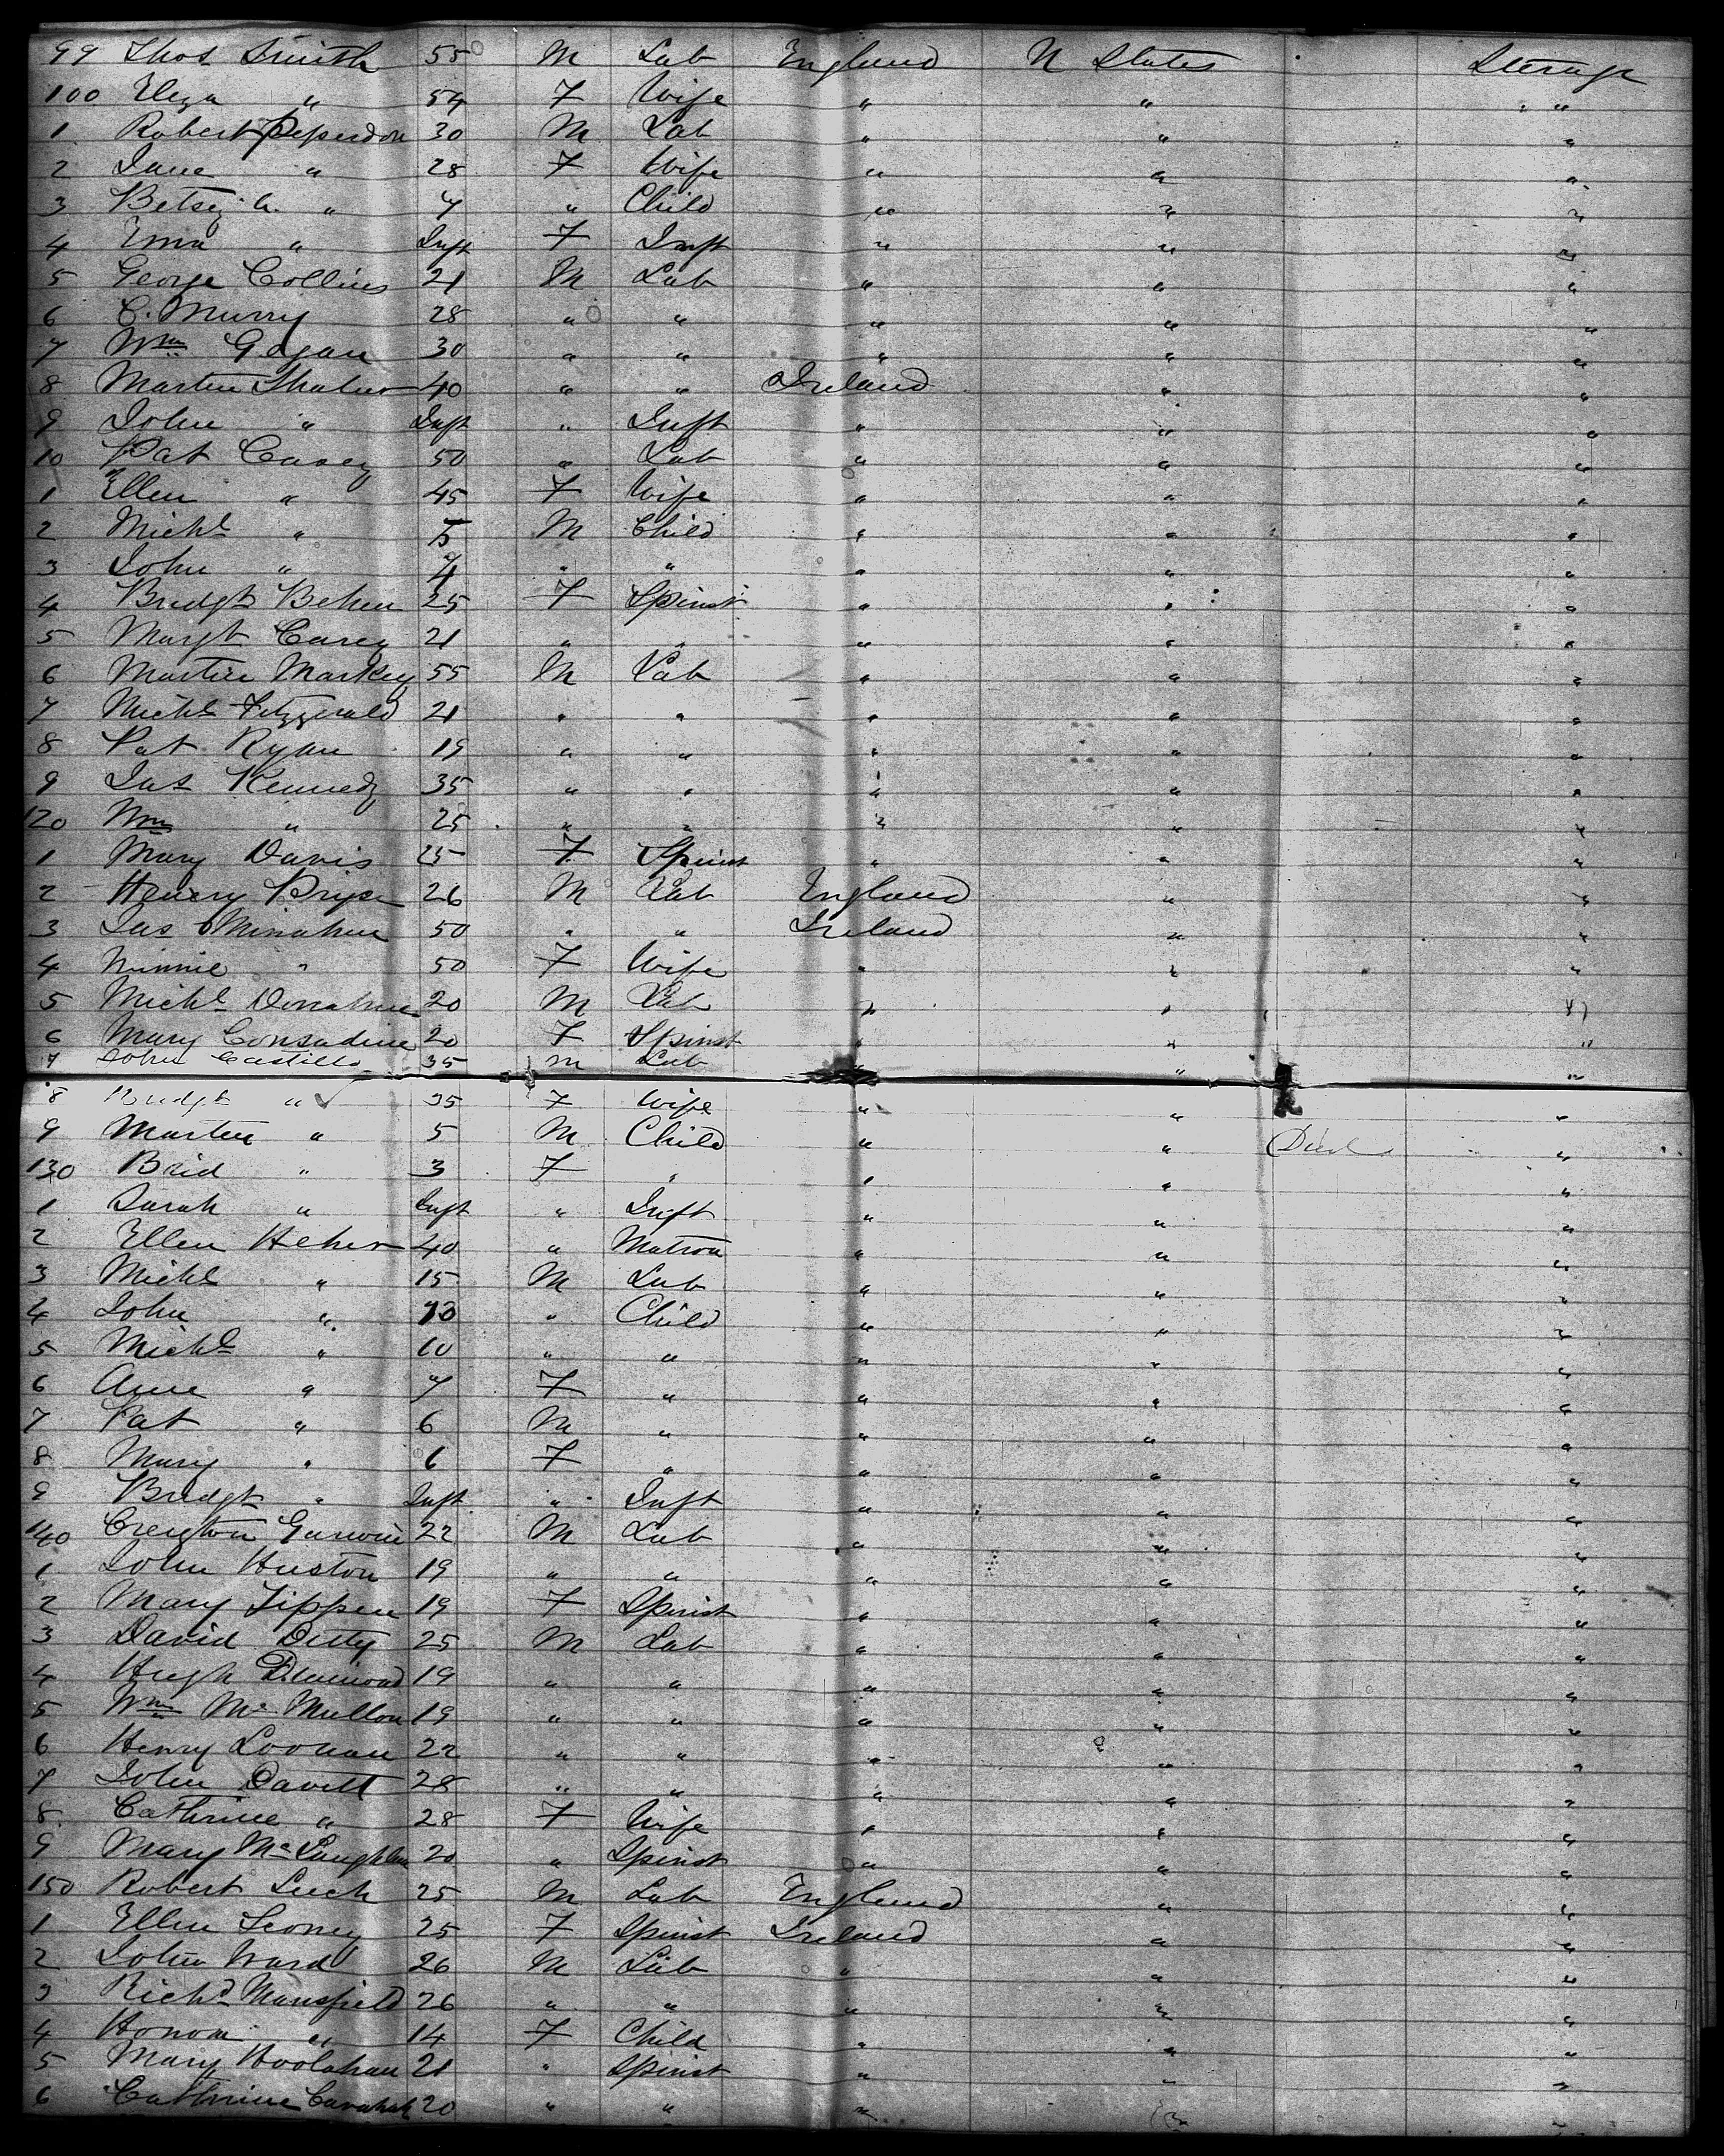 99 Thos Smith 55 M Lab England U States Steerage
100 Eliza " 54 F Wife " " "
1 Robert Peperdon 30 M Lab " " "
2 Jane " 28 F Wife " " "
3 Betsy A. " 7 " Child " " "
4 Ema " Inft F Inft " " "
5 George Collins 21 M Lab " " "
6 C. Murry 28 " " " " "
7 Wm Gagan 30 " " " " "
8 Martin 40 " " Ireland " "
9 John " Inft " Inft " " "
10 Pat Casey 50 " Lab " " "
1 Ellen " 45 F Wife " " "
2 Michl " 5 M Child " " "
3 John " 4 " " " " "
4 Bridgt Behen 25 F Spinst " " "
5 Margt Casey 21 " " " " "
6 Martin Markey 55 M Lab " " "
7 Michl Fitzgerald 21 " " " " "
8 Pat Ryan 19 " " " " "
9 Jas Kennedy 35 " " " " "
120 Wm " 25 " " " " "
1 Mary Davis 25 F Spinst " " "
2 Henery 26 M Lab England " "
3 Jas Minahan 50 " " Ireland " "
4 Winnie " 50 F Wife " " "
5 Michl Donahue 20 M Lab " " "
6 Mary Consadine 20 F Spinst " " "
7 John Castillo 35 M Lab " " "
8 Bridgt " 35 F Wife " " "
9 Martin " 5 M Child " " Died "
130 Brid " 3 F " " " "
1 Sarah " Inft " Inft " " "
2 Ellen Heher 40 " Matron " " "
3 Michl " 15 M Lab " " "
4 John " 13 " Child " " "
5 Michl " 10 " " " " "
6 Anne " 7 F " " " "
7 Pat " 6 M " " " "
8 Mary " 6 F " " " "
9 Bridgt " Inft " Inft " " "
140 Creigton 22 M Lab " " "
1 John Huston 19 " " " " "
2 Mary Tippen 19 F Spinst " " "
3 David Ditty 25 M Lab " " "
4 Hugh Diamond 19 " " " " "
5 Wm McMullon 19 " " " " "
6 Henry Loonan 22 " " " " "
7 John Davitt 28 " " " " "
8 Cathrine " 28 F Wife " " "
9 Mary McLaughlin 20 " Spinst " " "
150 Robert Leech 25 M Lab England " "
1 Ellen 25 F Spinst Ireland " "
2 John Ward 26 M Lab " " "
3 Richd Mansfield 26 " " " " "
4 Honora " 14 F Child " " "
5 Mary Hoolahan 21 " Spinst " " "
6 Cathrine 20 " " " " "